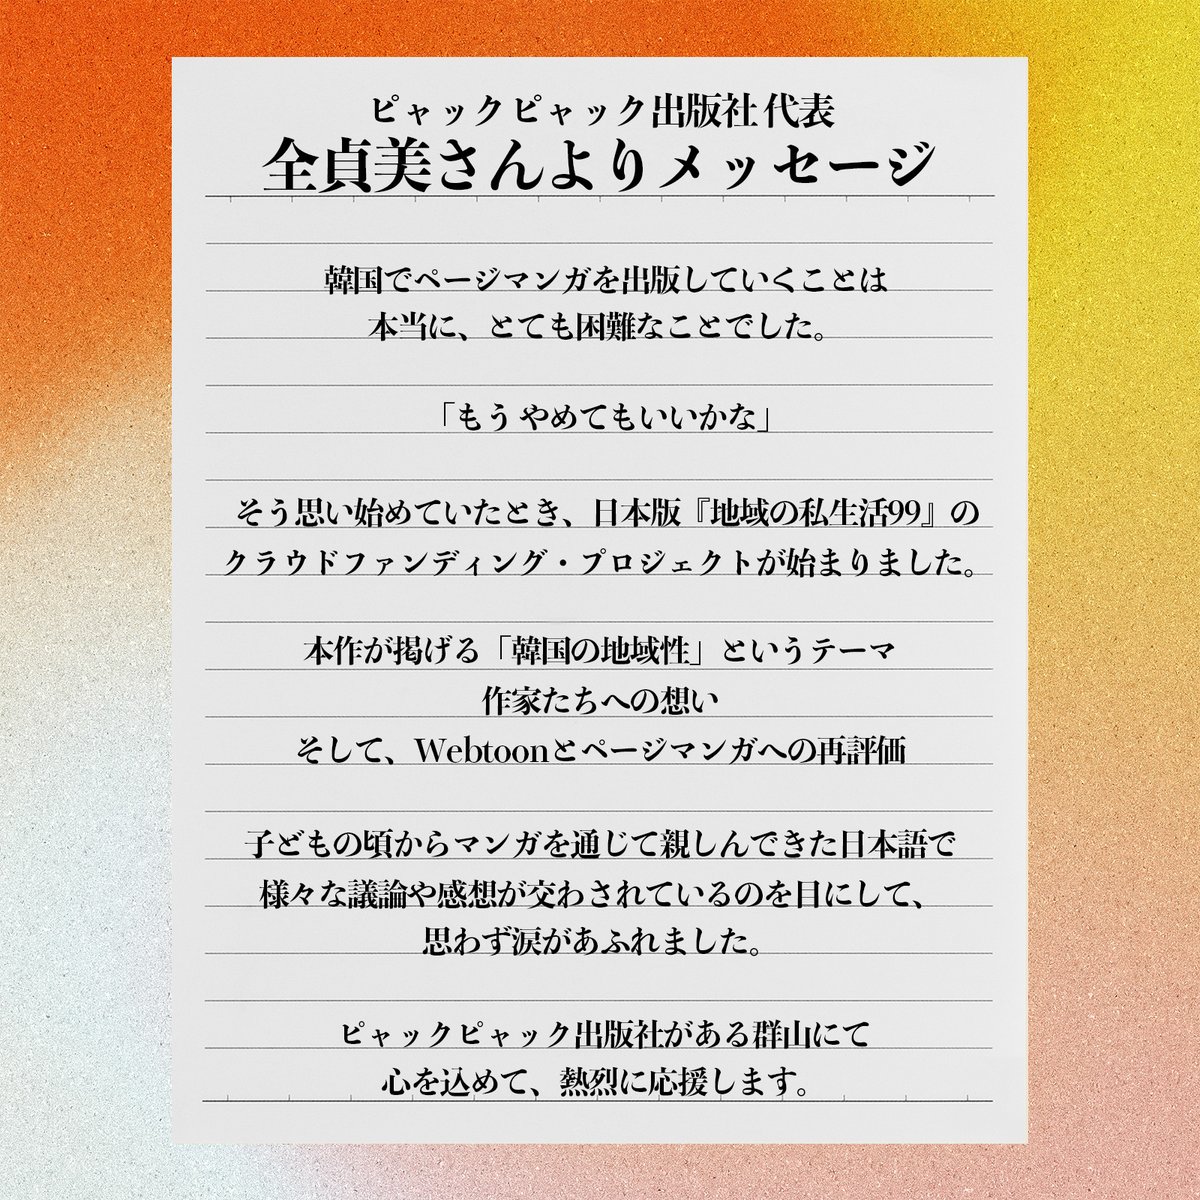 ピャックピャック出版社 代表
全貞美さんよりメッセージ
韓国でページマンガを出版していくことは
本当に、とても困難なことでした。
「もう やめてもいいかな」
そう思い始めていたとき、日本版『地域の私生活99』の
クラウドファンディング・プロジェクトが始まりました。
本作が掲げる「韓国の地域性」というテーマ
作家たちへの想い
そして、Webtoonとページマンガへの再評価
子どもの頃からマンガを通じて親しんできた日本語で
様々な議論や感想が交わされているのを目にして、
思わず涙があふれました。
ピャックピャック出版社がある群山にて
心を込めて、熱烈に応援します。